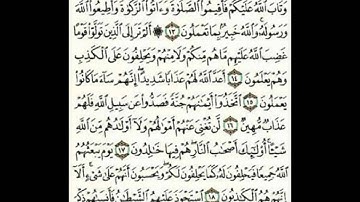 وَتَابَ ٱللَّهُ عَلَيْكُمْ فَأَقِيمُوا۟ ٱلصَّلَوٰةَ وَءَاتُوا۟ ٱلزَّكَوٰةَ وَأَطِيعُوا۟ ٱللَّهَ
وَرَسُولَهُۥ وَٱللَّهُ خَبِيرٌۢ بِمَا تَعْمَلُونَ ١٣ ۞ أَلَمْ تَرَ إِلَى ٱلَّذِينَ تَوَلَّوْا۟ قَوْمًا
غَضِبَ ٱللَّهُ عَلَيْهِم مَّا هُم مِّنكُمْ وَلَا مِنْهُمْ وَيَحْلِفُونَ عَلَى ٱلْكَذِبِ
وَهُمْ يَعْلَمُونَ ١٤ أَعَدَّ ٱللَّهُ لَهُمْ عَذَابًا شَدِيدًا إِنَّهُمْ سَآءَ مَا كَانُوا۟
يَعْمَلُونَ ١٥ ٱتَّخَذُوٓا۟ أَيْمَٰنَهُمْ جُنَّةً فَصَدُّوا۟ عَن سَبِيلِ ٱللَّهِ فَلَهُمْ
عَذَابٌ مُّهِينٌ ١٦ لَّن تُغْنِىَ عَنْهُمْ أَمْوَٰلُهُمْ وَلَآ أَوْلَٰدُهُم مِّنَ ٱللَّهِ
شَيْـًٔا أُو۟لَٰٓئِكَ أَصْحَٰبُ ٱلنَّارِ هُمْ فِيهَا خَٰلِدُونَ ١٧ يَوْمَ يَبْعَثُهُمُ
ٱللَّهُ جَمِيعًا فَيَحْلِفُونَ لَهُۥ كَمَا يَحْلِفُونَ لَكُمْ وَيَحْسَبُونَ أَنَّهُمْ عَلَىٰ شَىْءٍ أَلَآ
إِنَّهُمْ هُمُ ٱلْكَٰذِبُونَ ١٨ ٱسْتَحْوَذَ عَلَيْهِمُ ٱلشَّيْطَٰنُ فَأَنسَىٰهُمْ ذِكْرَ